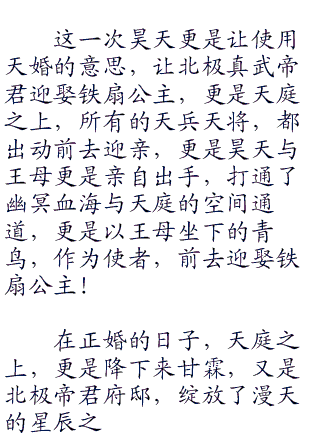 这一次昊天更是让使用
天婚的意思，让北极真武帝
君迎娶铁扇公主，更是天庭
之上，所有的天兵天将，都
出动前去迎亲，更是昊天与
王母更是亲自出手，打通了
幽冥血海与天庭的空间通
道，更是以王母坐下的青
鸟，作为使者，前去迎娶铁
扇公主！
在正婚的日子，天庭之
上，更是降下来甘霖，又是
北极帝君府邸，绽放了漫天
的星辰之